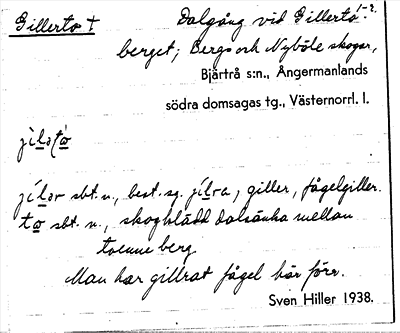 Gillerto † Dalgång vid Gillerto- 1-2.
berget; Bergs och Nyböle skogar,
Bjärtrå s:n., Ångermanlands
södra domsagas tg., Västernorrl. l.
sbt. n., best. sg. giller, fågelgiller.
to sbt. n., skogklädd dalsänka mellan
tvenne berg
Man har gillrat fågel här förr.
Sven Hiller 1938.